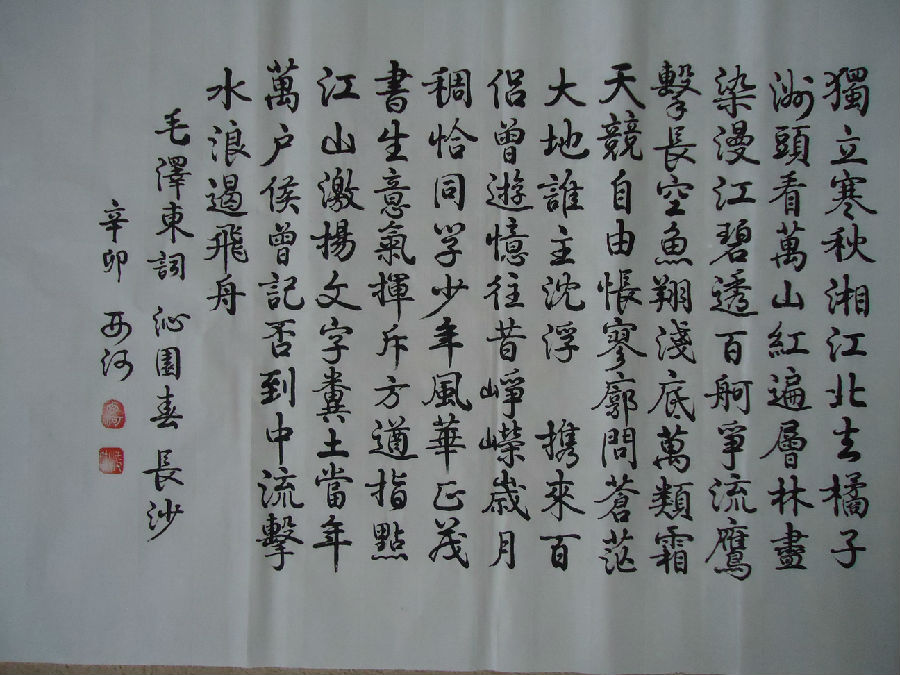 獨立寒秋湘江北去橘子
洲頭看萬山紅遍層林盡
染漫江碧透百舸爭流鷹
擊長空魚翔淺底萬類霜
天競自由悵寥廓問蒼茫
大地誰主沈浮 携來百
侣曾遊憶往昔崢嶸歲月
稠恰同学少年風華正茂
書生意氣揮斥方遒指點
江山激揚文字糞土當年
萬户侯曾記否到中流擊
水浪遏飛舟
毛澤東詞 沁園春 長沙
辛卯 西河